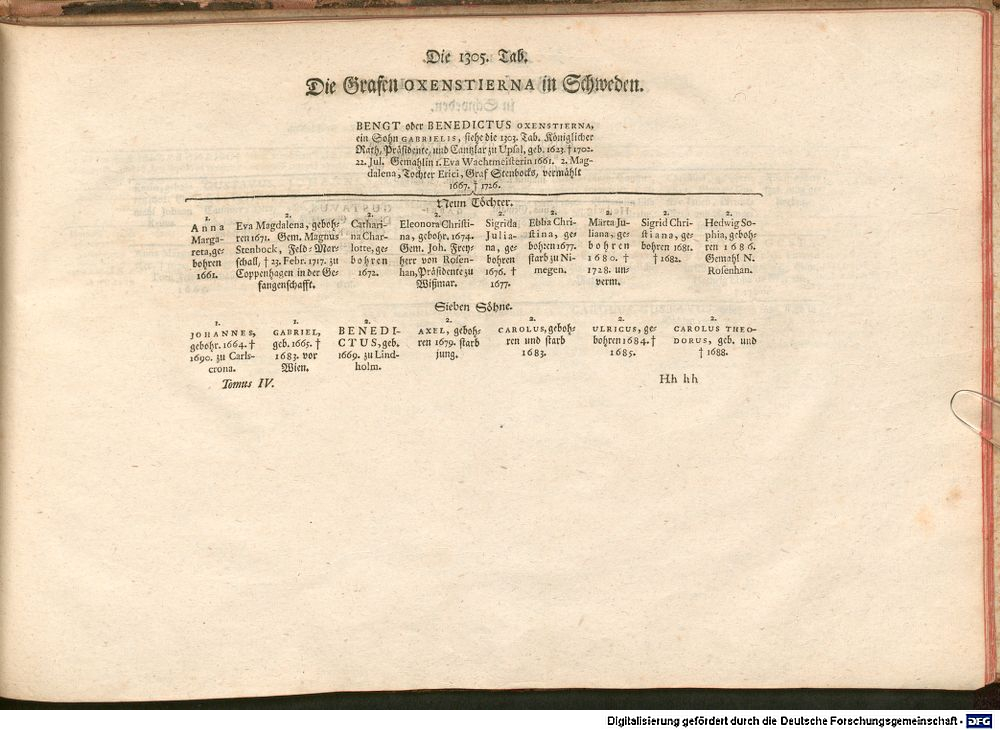 Die 1305. Tab.
Die Grafen OXENSTIERNA in Schweden.
BENGT oder BENEDICTUS OXENSTIERNA,
ein Sohn GABRIELIS, siehe die 1303. Tab. Königlicher
Rath, Präsidente, und Cantzlar zu Upsal, geb. 1623. † 1702.
22. Jul. Gemahlin 1. Eva Wachtmeisterin 1661. 2. Mag-
dalena, Tochter Erici, Graf Stenbocks, vermählt
1667. † 1726.
Neun Töchter.
1.
Anna
Marga-
reta, ge-
bohren
1661.
2.
Eva Magdalena, geboh-
ren 1671. Gem. Magnus
Stenbock, Feld-Mar-
schall, † 23. Febr. 1717. zu
Coppenhagen in der Ge-
fangenschafft.
2.
Cathari-
na Char-
lotte, ge-
bohren
1672.
2.
Eleonora Christi-
na, gebohr. 1674.
Gem. Joh. Frey-
herr von Rosen-
han, Präsidente zu
Wißmar.
2.
Sigrida
Julia-
na, ge-
bohren
1676. †
1677.
2.
Ebba Chri-
stina, ge-
bohren 1677.
starb zu Ni-
megen.
2.
Märta Ju-
liana, ge-
bohren
1680. †
1728. un-
verm.
2.
Sigrid Chri-
stiana, ge-
bohren 1681.
† 1682.
2.
Hedwig So-
phia, geboh-
ren 1686.
Gemahl N.
Rosenhan.
Sieben Söhne.
1.
JOHANNES,
gebohr. 1664. †
1690. zu Carls-
crona.
1.
GABRIEL,
geb. 1665. †
1683. vor
Wien.
2.
BENEDI-
CTUS, geb.
1669. zu Lind-
holm.
2.
AXEL, geboh-
ren 1679. starb
jung.
2.
CAROLUS, geboh-
ren und starb
1683.
2.
ULRICUS, ge-
bohren 1684. †
1685.
2.
CAROLUS THEO-
DORUS, geb. und
† 1688.
Tomus IV.
Hh hh
Digitalisierung gefördert durch die Deutsche Forschungsgemeinschaft - DFG